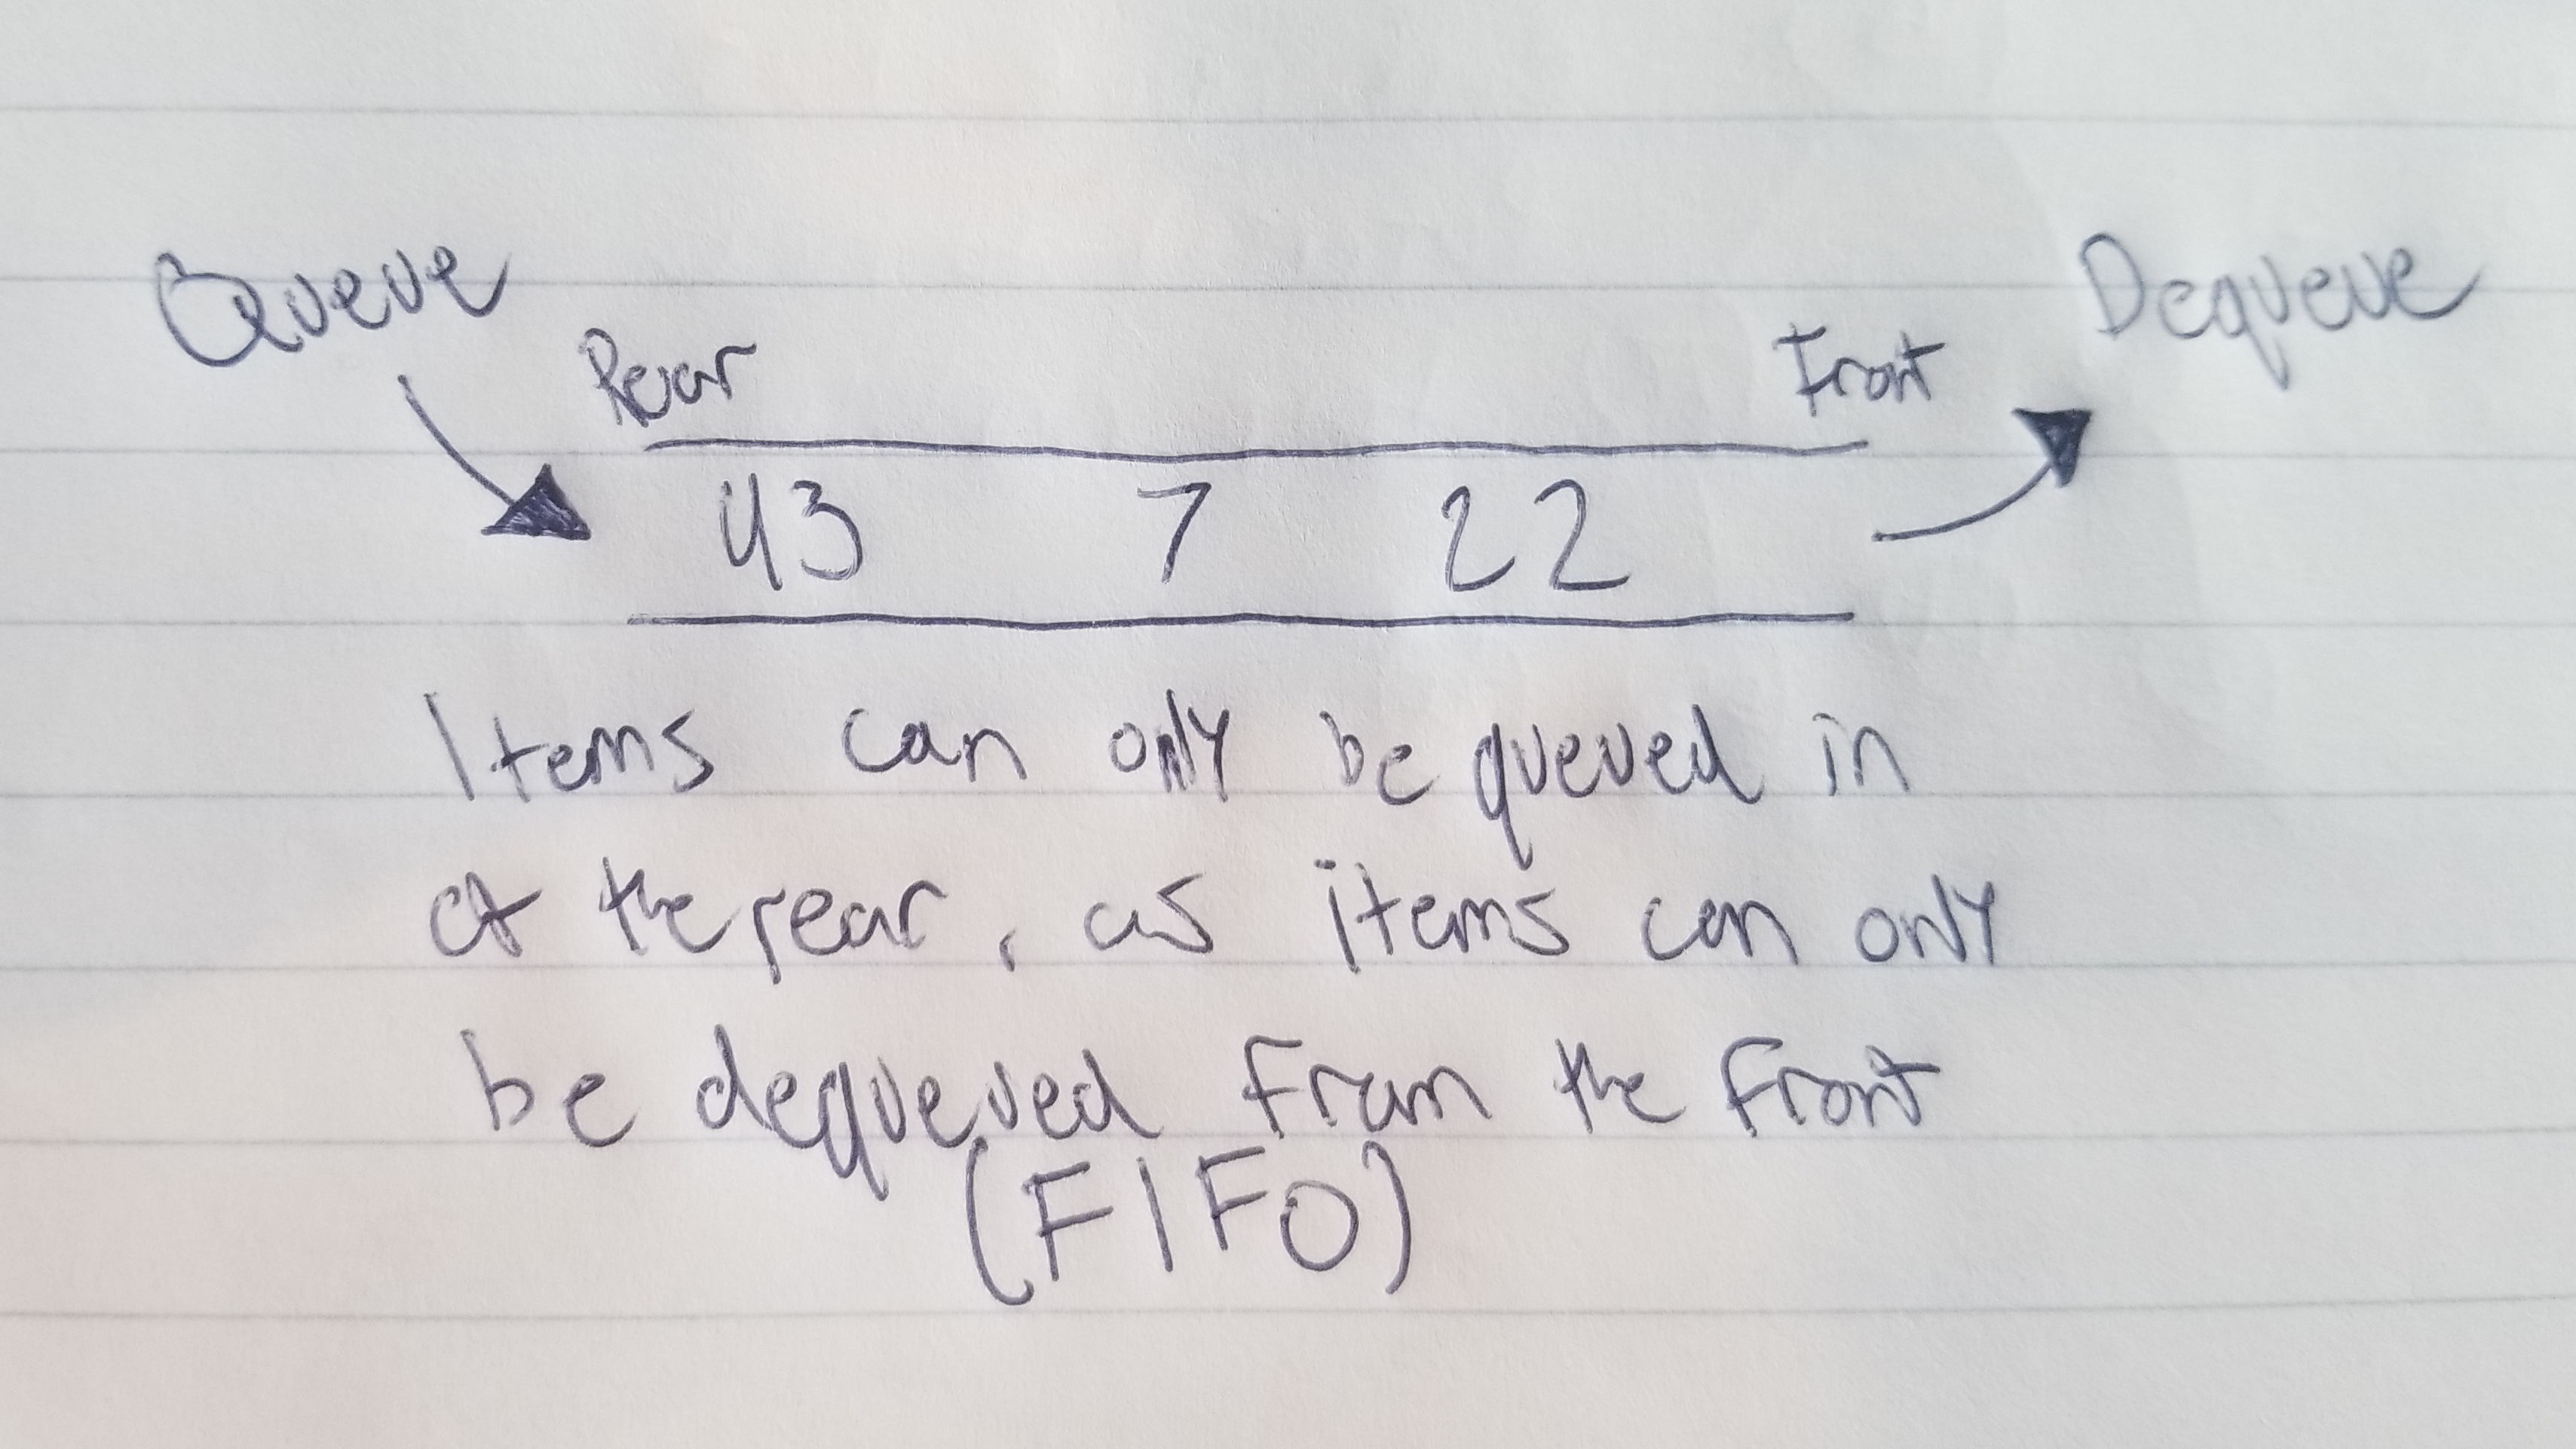 Queue
Dequeue
Rear
Front
43 7 22
Items can only be queued in
at the rear, as items can only
be dequeued from the front
(FIFO)